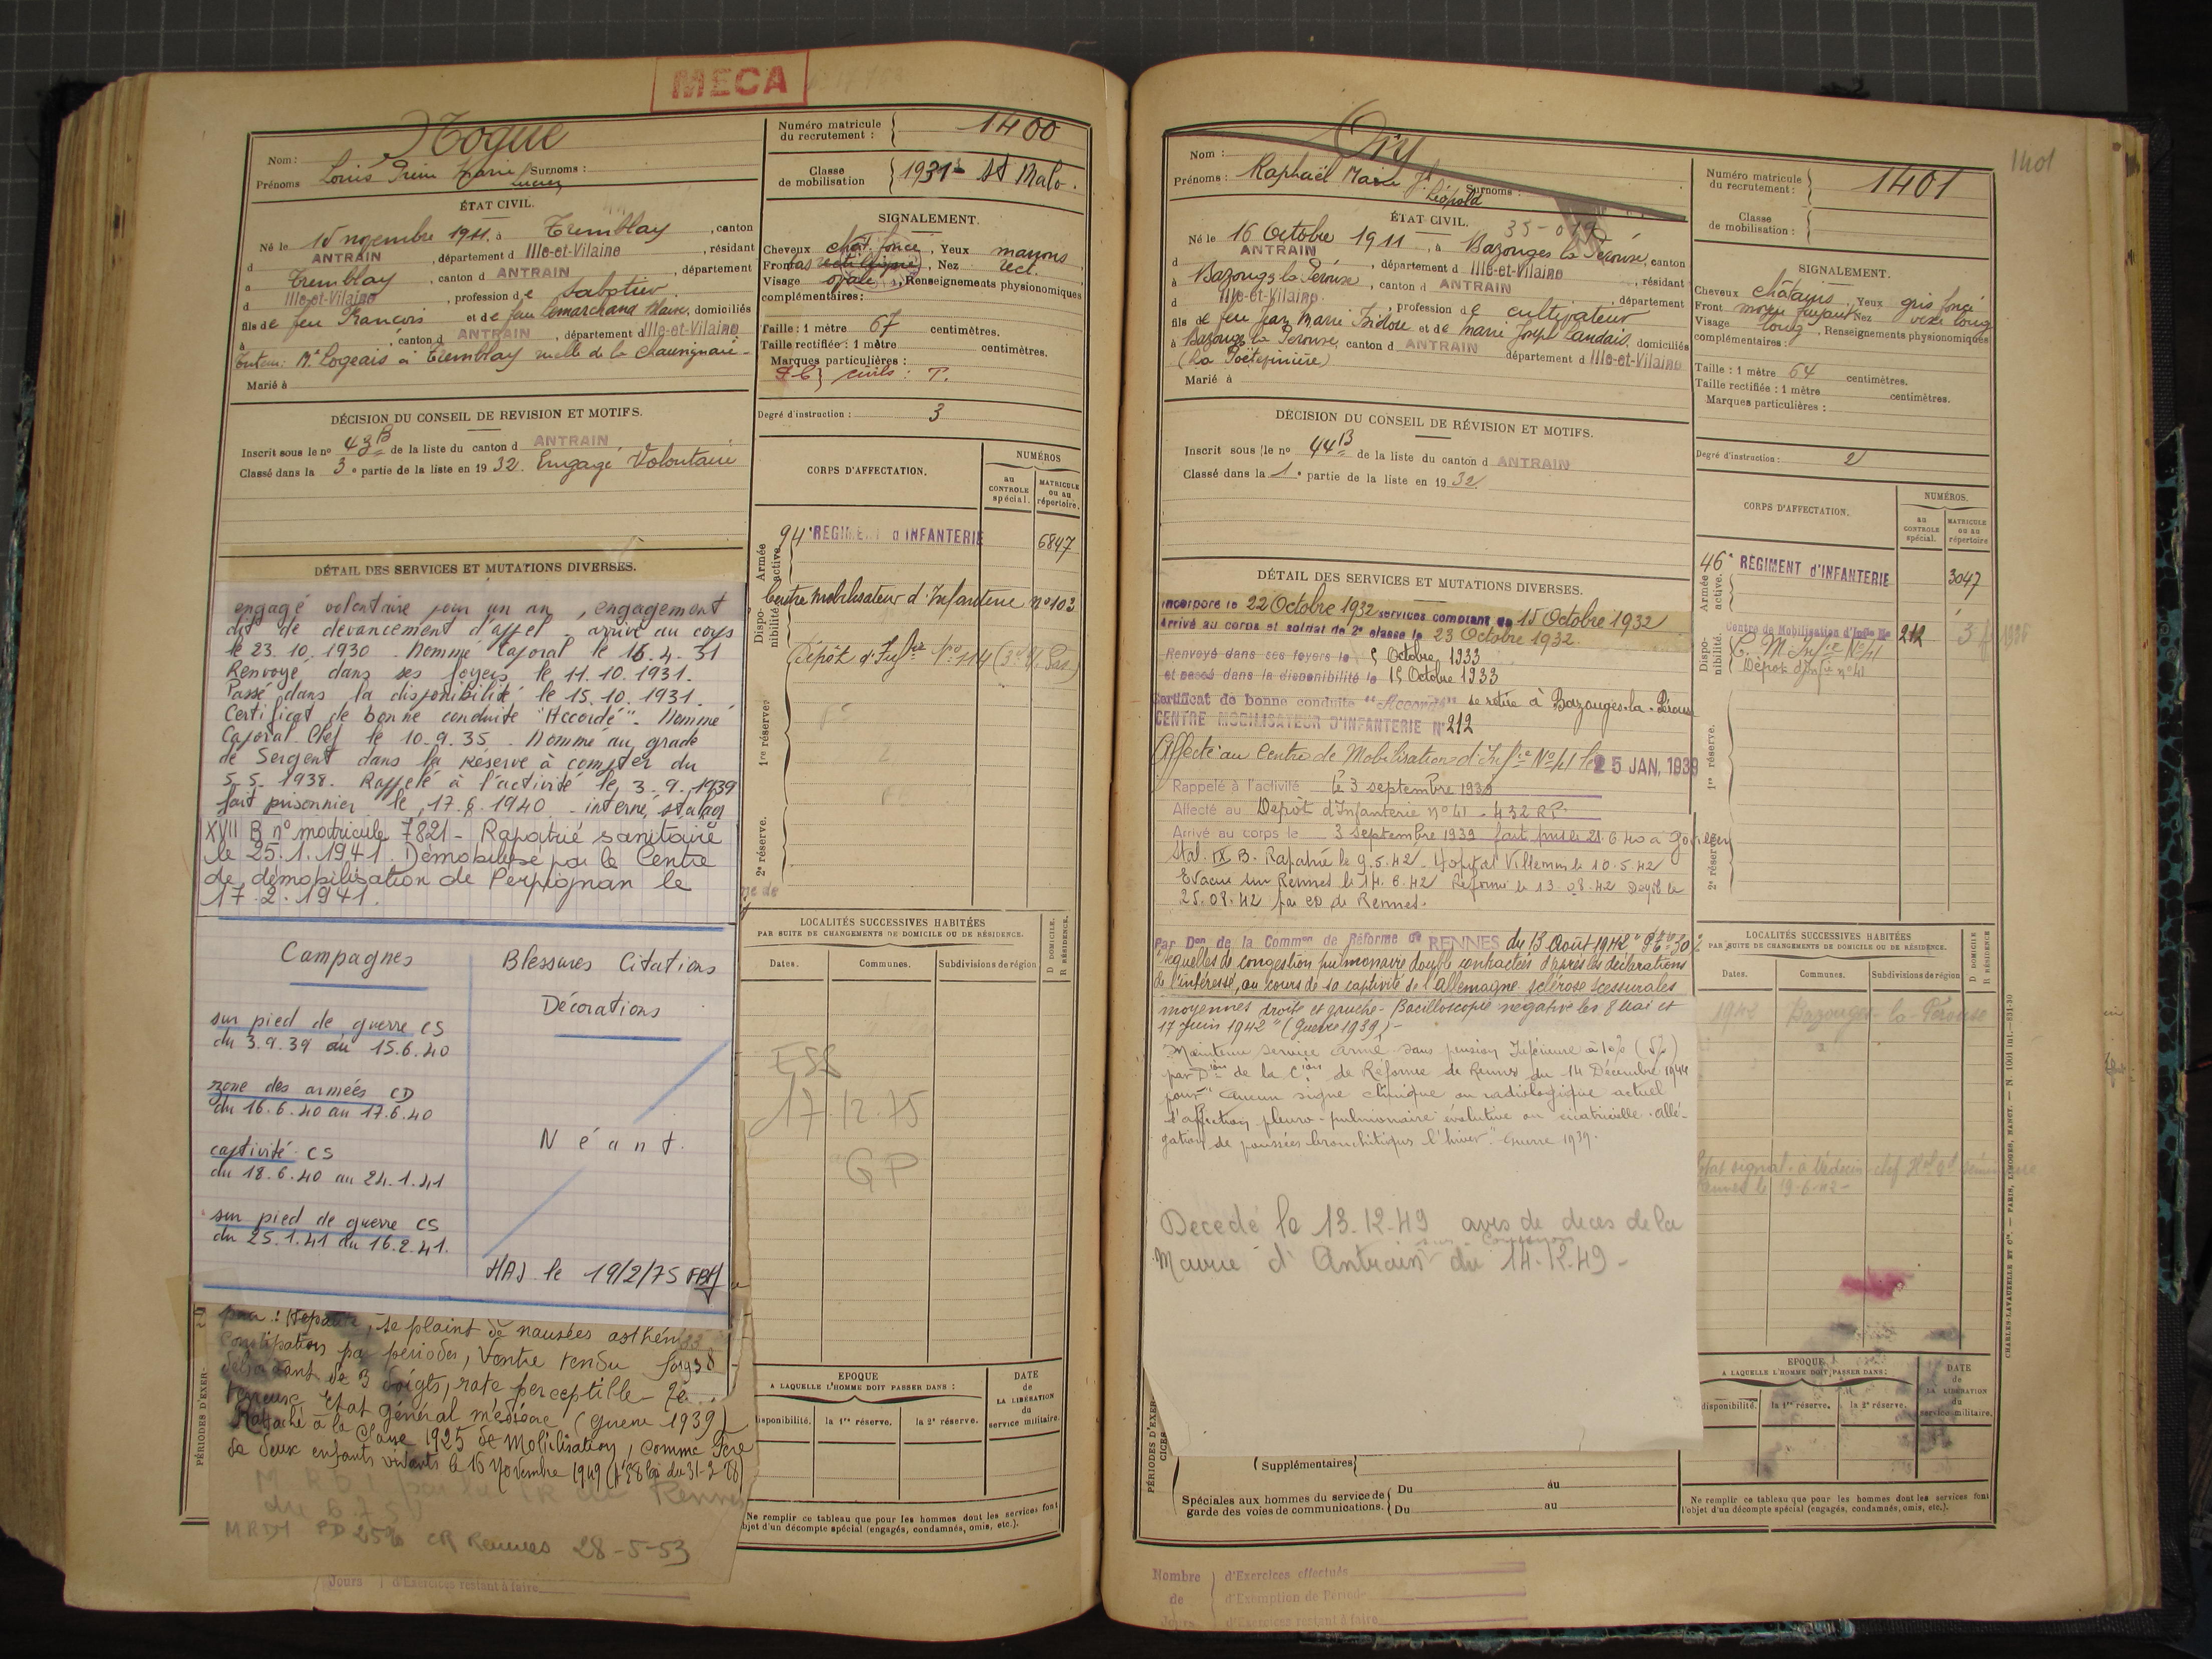 MECA
Nogue
Nom :
Prénoms Louis Marie Surnoms :
Lucien
ÉTAT CIVIL.
Né le 15 novembre 1911. à Tremblay, canton
d ANTRAIN, département d Ille-et-Vilaine, résidant
à Tremblay, canton d ANTRAIN, département
d Ille-et-Vilaine, profession de sabotier
fils de feu François et de feu Lemarchand Marie, domiciliés
à , canton d ANTRAIN, département d Ille-et-Vilaine
Tuteur: Mr Logeais à Tremblay
Marié à
DÉCISION DU CONSEIL DE REVISION ET MOTIFS.
Inscrit sous le no 43 B de la liste du canton d ANTRAIN
Classé dans la 3e partie de la liste en 1932. Engagé Volontaire
DÉTAIL DES SERVICES ET MUTATIONS DIVERSES.
engagé volontaire pour un an, engagement
dit de devancement d'appel - arrivé au corps
le 23.10.1930. Nommé Caporal le 16.4.31
Renvoyé dans ses foyers le 11.10.1931.
Passé dans la disponibilité le 15.10.1931.
Certificat de bonne conduite "Accordé". Nommé
Caporal Chef le 10.9.35. Nommé au grade
de Sergent dans la réserve à compter du
5.5.1938. Rappelé à l'activité le 3.9.1939
fait prisonnier le 17.6.1940 - interné stalag
XVII B no matricule 7821 - Rapatrié sanitaire
le 25.1.1941. Démobilisé par le Centre
de démobilisation de Perpignan le
17.2.1941.
Campagnes
sur pied de guerre CS
du 3.9.39 au 15.6.40
zone des armées CD
du 16.6.40 au 17.6.40
captivité CS
du 18.6.40 au 24.1.41
sur pied de guerre CS
du 25.1.41 au 16.2.41.
Blessures Citations
Décorations
Néant.
MAJ le 19/2/75
se plaint de nausées
Constipation par périodes, Ventre tendu foie
de 3 doigts, rate perceptible -
Etat général médiocre (Guerre 1939)
Rattaché à la Classe 1925 de Mobilisation, comme Père
de deux enfants vivants le 16 Novembre 1949
MRD1 PD 25% CR Rennes 28-5-53
PÉRIODES D'EXER-
Jours d'Exercices restant à faire
Numéro matricule du recrutement : 1400
Classe de mobilisation 1931 St Malo.
SIGNALEMENT.
Cheveux chât. foncé, Yeux marrons
Front , Nez rect.
Visage ovale, Renseignements physionomiques
complémentaires :
Taille : 1 mètre 67 centimètres.
Taille rectifiée : 1 mètre centimètres.
Marques particulières :
civils : T.
Degré d'instruction : 3
CORPS D'AFFECTATION.
NUMÉROS
au CONTROLE spécial.
MATRICULE ou au répertoire.
Armée active.
94e REGIMENT d'INFANTERIE 6847
Disponibilité
Centre Mobilisateur d'Infanterie no 102
Dépôt d'Inf.rie No 114
1re réserve.
2e réserve.
LOCALITÉS SUCCESSIVES HABITÉES
PAR SUITE DE CHANGEMENTS DE DOMICILE OU DE RÉSIDENCE.
D DOMICILE. R RÉSIDENCE.
Dates. Communes. Subdivisions de région
ESS
17.12.75
GP
EPOQUE
A LAQUELLE L'HOMME DOIT PASSER DANS :
DATE de LA LIBÉRATION du service militaire.
disponibilité. la 1re réserve. la 2e réserve.
Ne remplir ce tableau que pour les hommes dont les services font
l'objet d'un décompte spécial (engagés, condamnés, omis, etc.).
1401
Nom : Ory
Prénoms : Raphaël Marie Jh Surnoms :
Léopold
ÉTAT CIVIL.
Né le 16 Octobre 1911, à Bazouges la Pérouse, canton
d ANTRAIN, département d Ille-et-Vilaine, résidant
à Bazouges la Pérouse, canton d ANTRAIN, département
d Ille-et-Vilaine, profession de cultivateur
fils de feu Jean Marie Isidore et de Marie Joseph Landais, domiciliés
à Bazouges la Pérouse, canton d ANTRAIN département d Ille-et-Vilaine
Marié à
DÉCISION DU CONSEIL DE RÉVISION ET MOTIFS.
Inscrit sous le no 44 B de la liste du canton d ANTRAIN
Classé dans la 1e partie de la liste en 1932
DÉTAIL DES SERVICES ET MUTATIONS DIVERSES.
Incorporé le 22 Octobre 1932 services comptant du 15 Octobre 1932
Arrivé au corps et soldat de 2e classe le 23 Octobre 1932.
Renvoyé dans ses foyers le 5 Octobre 1933
et passé dans la disponibilité le 15 Octobre 1933
Certificat de bonne conduite "Accordé" se retire à Bazouges-la-Pérouse
CENTRE MOBILISATEUR D'INFANTERIE No 212
Affecté au Centre de Mobilisation d'Inf.ie No 41 le 25 JAN. 1938
Rappelé à l'activité le 3 septembre 1939
Affecté au Dépôt d'Infanterie no 41 - 432 RP.
Arrivé au corps le 3 septembre 1939 fait pris le 21.6.40 à
Stal. IX B. Rapatrié le 9.5.42 Hôpital Villemin le 10.5.42
Evacué sur Rennes le 14.6.42 Réformé le 13.08.42
25.08.42 par CD de Rennes.
Par Don de la Common de Réforme de RENNES du 13 Août 1942 30%
séquelles de congestion pulmonaire double contractées d'après les déclarations
de l'intéressé, au cours de sa captivité de l'Allemagne - sclérose scessurales
moyennes droite et gauche - Bacilloscopie négative les 8 Mai et
17 Juin 1942 " (Guerre 1939) -
Maintenu service armé sans pension Inférieure à 10% (5%)
par Dion de la Cion de Réforme de Rennes du 14 Décembre 1944
pour " aucun signe clinique ou radiologique actuel
d'affection pleuro-pulmonaire évolutive ou cicatricielle. Allé-
gation de poussées bronchitiques l'hiver." Guerre 1939.
Décédé le 13.12.49 avis de décès de la
Mairie d'Antrain du 14.12.49 -
PÉRIODES D'EXERCICES
Supplémentaires
Spéciales aux hommes du service de garde des voies de communications.
Du au
Du au
Nombre de Jours
d'Exercices effectués
d'Exemption de Période
d'Exercices restant à faire
Numéro matricule du recrutement : 1401
Classe de mobilisation :
SIGNALEMENT.
Cheveux châtains, Yeux gris foncé
Front moyen fuyant Nez vexe long
Visage long, Renseignements physionomiques
complémentaires :
Taille : 1 mètre 64 centimètres.
Taille rectifiée : 1 mètre centimètres.
Marques particulières :
Degré d'instruction : 2
CORPS D'AFFECTATION.
NUMÉROS.
au CONTROLE spécial.
MATRICULE ou au répertoire
Armée active.
46e RÉGIMENT d'INFANTERIE 3047
Disponibilité.
Centre de Mobilisation d'Infie No 212
C. M. Infie No 41
Dépôt d'Infie no 41
1re réserve.
2e réserve.
LOCALITÉS SUCCESSIVES HABITÉES
PAR SUITE DE CHANGEMENTS DE DOMICILE OU DE RÉSIDENCE.
D DOMICILE R RÉSIDENCE
Dates. Communes. Subdivisions de région
1942 Bazouges-la-Pérouse
EPOQUE
A LAQUELLE L'HOMME DOIT PASSER DANS :
DATE de LA LIBÉRATION du service militaire.
disponibilité. la 1re réserve. la 2e réserve.
Ne remplir ce tableau que pour les hommes dont les services font
l'objet d'un décompte spécial (engagés, condamnés, omis, etc.).
CHARLES-LAVAUZELLE ET Cie. — PARIS, LIMOGES, NANCY. — N. 1004 int.—831-30